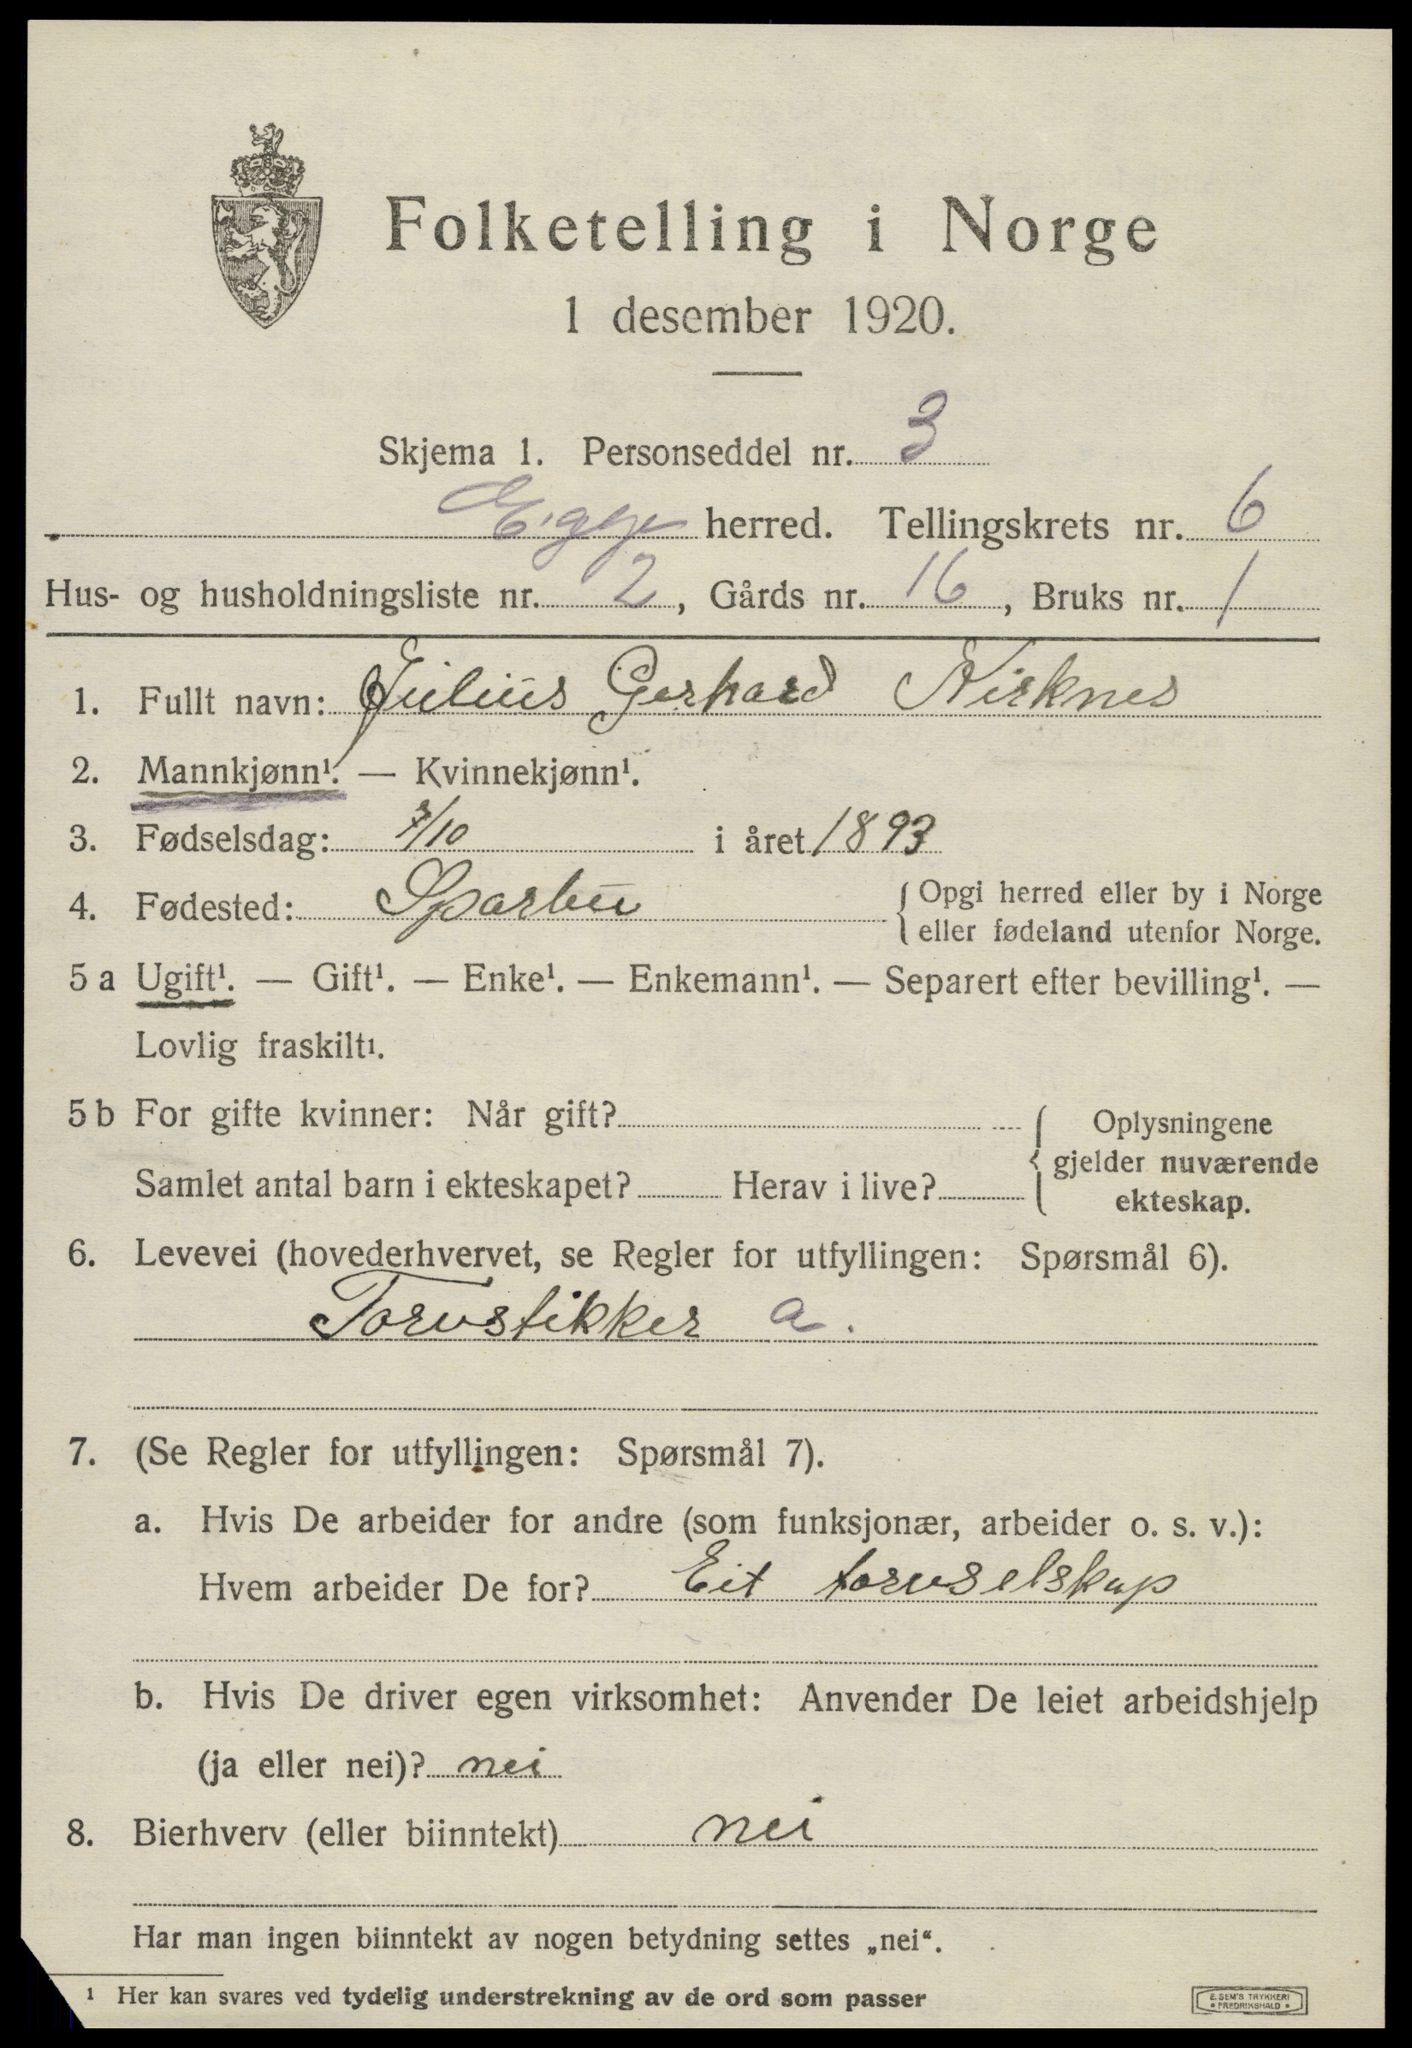 Folketelling i Norge
1 desember 1920.
Skjema 1. Personseddel nr. 3
Egge herred. Tellingskrets nr. 6
Hus- og husholdningsliste nr. 2, Gårds nr. 16, Bruks nr. 1
1. Fullt navn: Julius Gerhard Kirknes
2. Mannkjønn¹. — Kvinnekjønn¹.
3. Fødselsdag: /10 i året 1893
4. Fødested: Sparbu { Opgi herred eller by i Norge
eller fødeland utenfor Norge.
5 a Ugift¹. — Gift¹. — Enke¹. — Enkemann¹. — Separert efter bevilling¹. —
Lovlig fraskilt¹.
5 b For gifte kvinner: Når gift?
Samlet antal barn i ekteskapet? Herav i live?
{ Oplysningene
gjelder nuværende
ekteskap.
6. Levevei (hovederhvervet, se Regler for utfyllingen: Spørsmål 6).
Torvstikker a.
7. (Se Regler for utfyllingen: Spørsmål 7).
a. Hvis De arbeider for andre (som funksjonær, arbeider o. s. v.):
Hvem arbeider De for? Eit torvselskap
b. Hvis De driver egen virksomhet: Anvender De leiet arbeidshjelp
(ja eller nei)? nei
8. Bierhverv (eller biinntekt) nei
Har man ingen biinntekt av nogen betydning settes „nei“.
¹ Her kan svares ved tydelig understrekning av de ord som passer
E. SEM'S TRYKKERI
• FREDRIKSHALD •